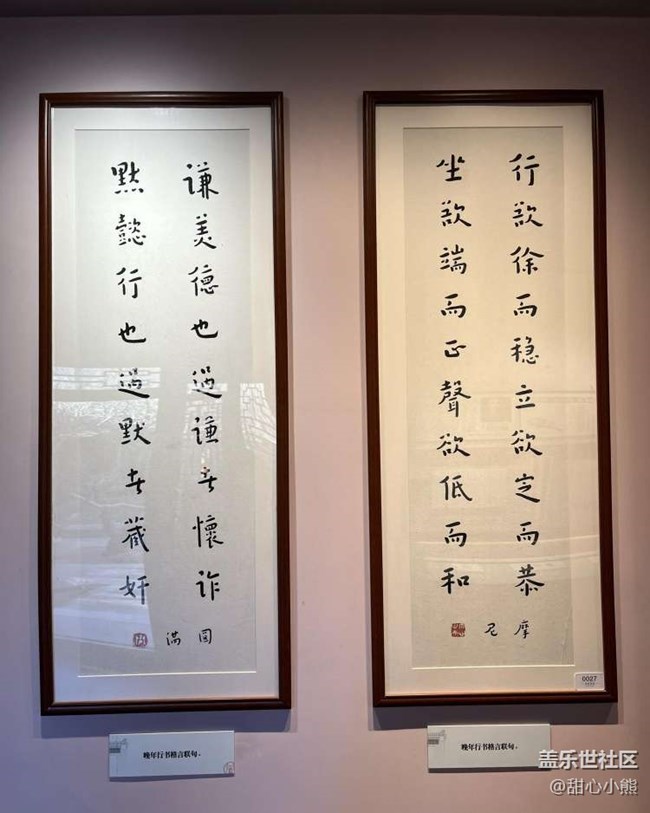 谦美德也過谦者懷诈
黙懿行也過默者藏奸
圆
满
行欲徐而稳立欲定而恭
坐欲端而正聲欲低而和
摩
尼
0027
晚年行书格言联句。
晚年行书格言联句。
盖乐世社区
@甜心小熊